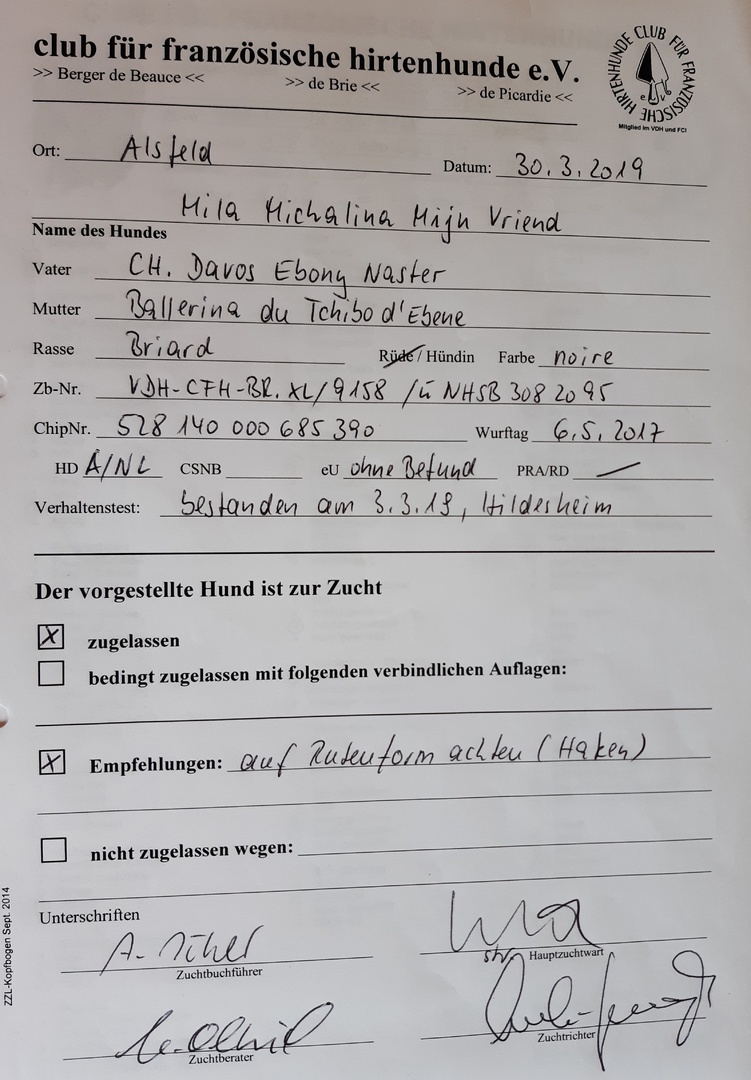 club für französische hirtenhunde e.V.
>> Berger de Beauce << >> de Brie << >> de Picardie <<
CLUB FÜR FRANZÖSISCHE HIRTENHUNDE e.V.
Mitglied im VDH und FCI
Ort: Alsfeld Datum: 30.3.2019
Mila Michalina Mijn Vriend
Name des Hundes
Vater CH. Davos Ebony Naster
Mutter Ballerina du Tchibo d'Ebene
Rasse Briard Rüde / Hündin Farbe noire
Zb-Nr. VDH-CFH-BR. XL/9158 /ü NHSB 308 20 95
ChipNr. 528 140 000 685 390 Wurftag 6.5.2017
HD A/NL CSNB eU ohne Befund PRA/RD —
Verhaltenstest: bestanden am 3.3.19, Hildesheim
Der vorgestellte Hund ist zur Zucht
X zugelassen
bedingt zugelassen mit folgenden verbindlichen Auflagen:
X Empfehlungen: auf Rutenform achten (Haken)
nicht zugelassen wegen:
Unterschriften
Zuchtbuchführer
stv. Hauptzuchtwart
Zuchtberater
Zuchtrichter
ZZL-Kopfbogen Sept. 2014